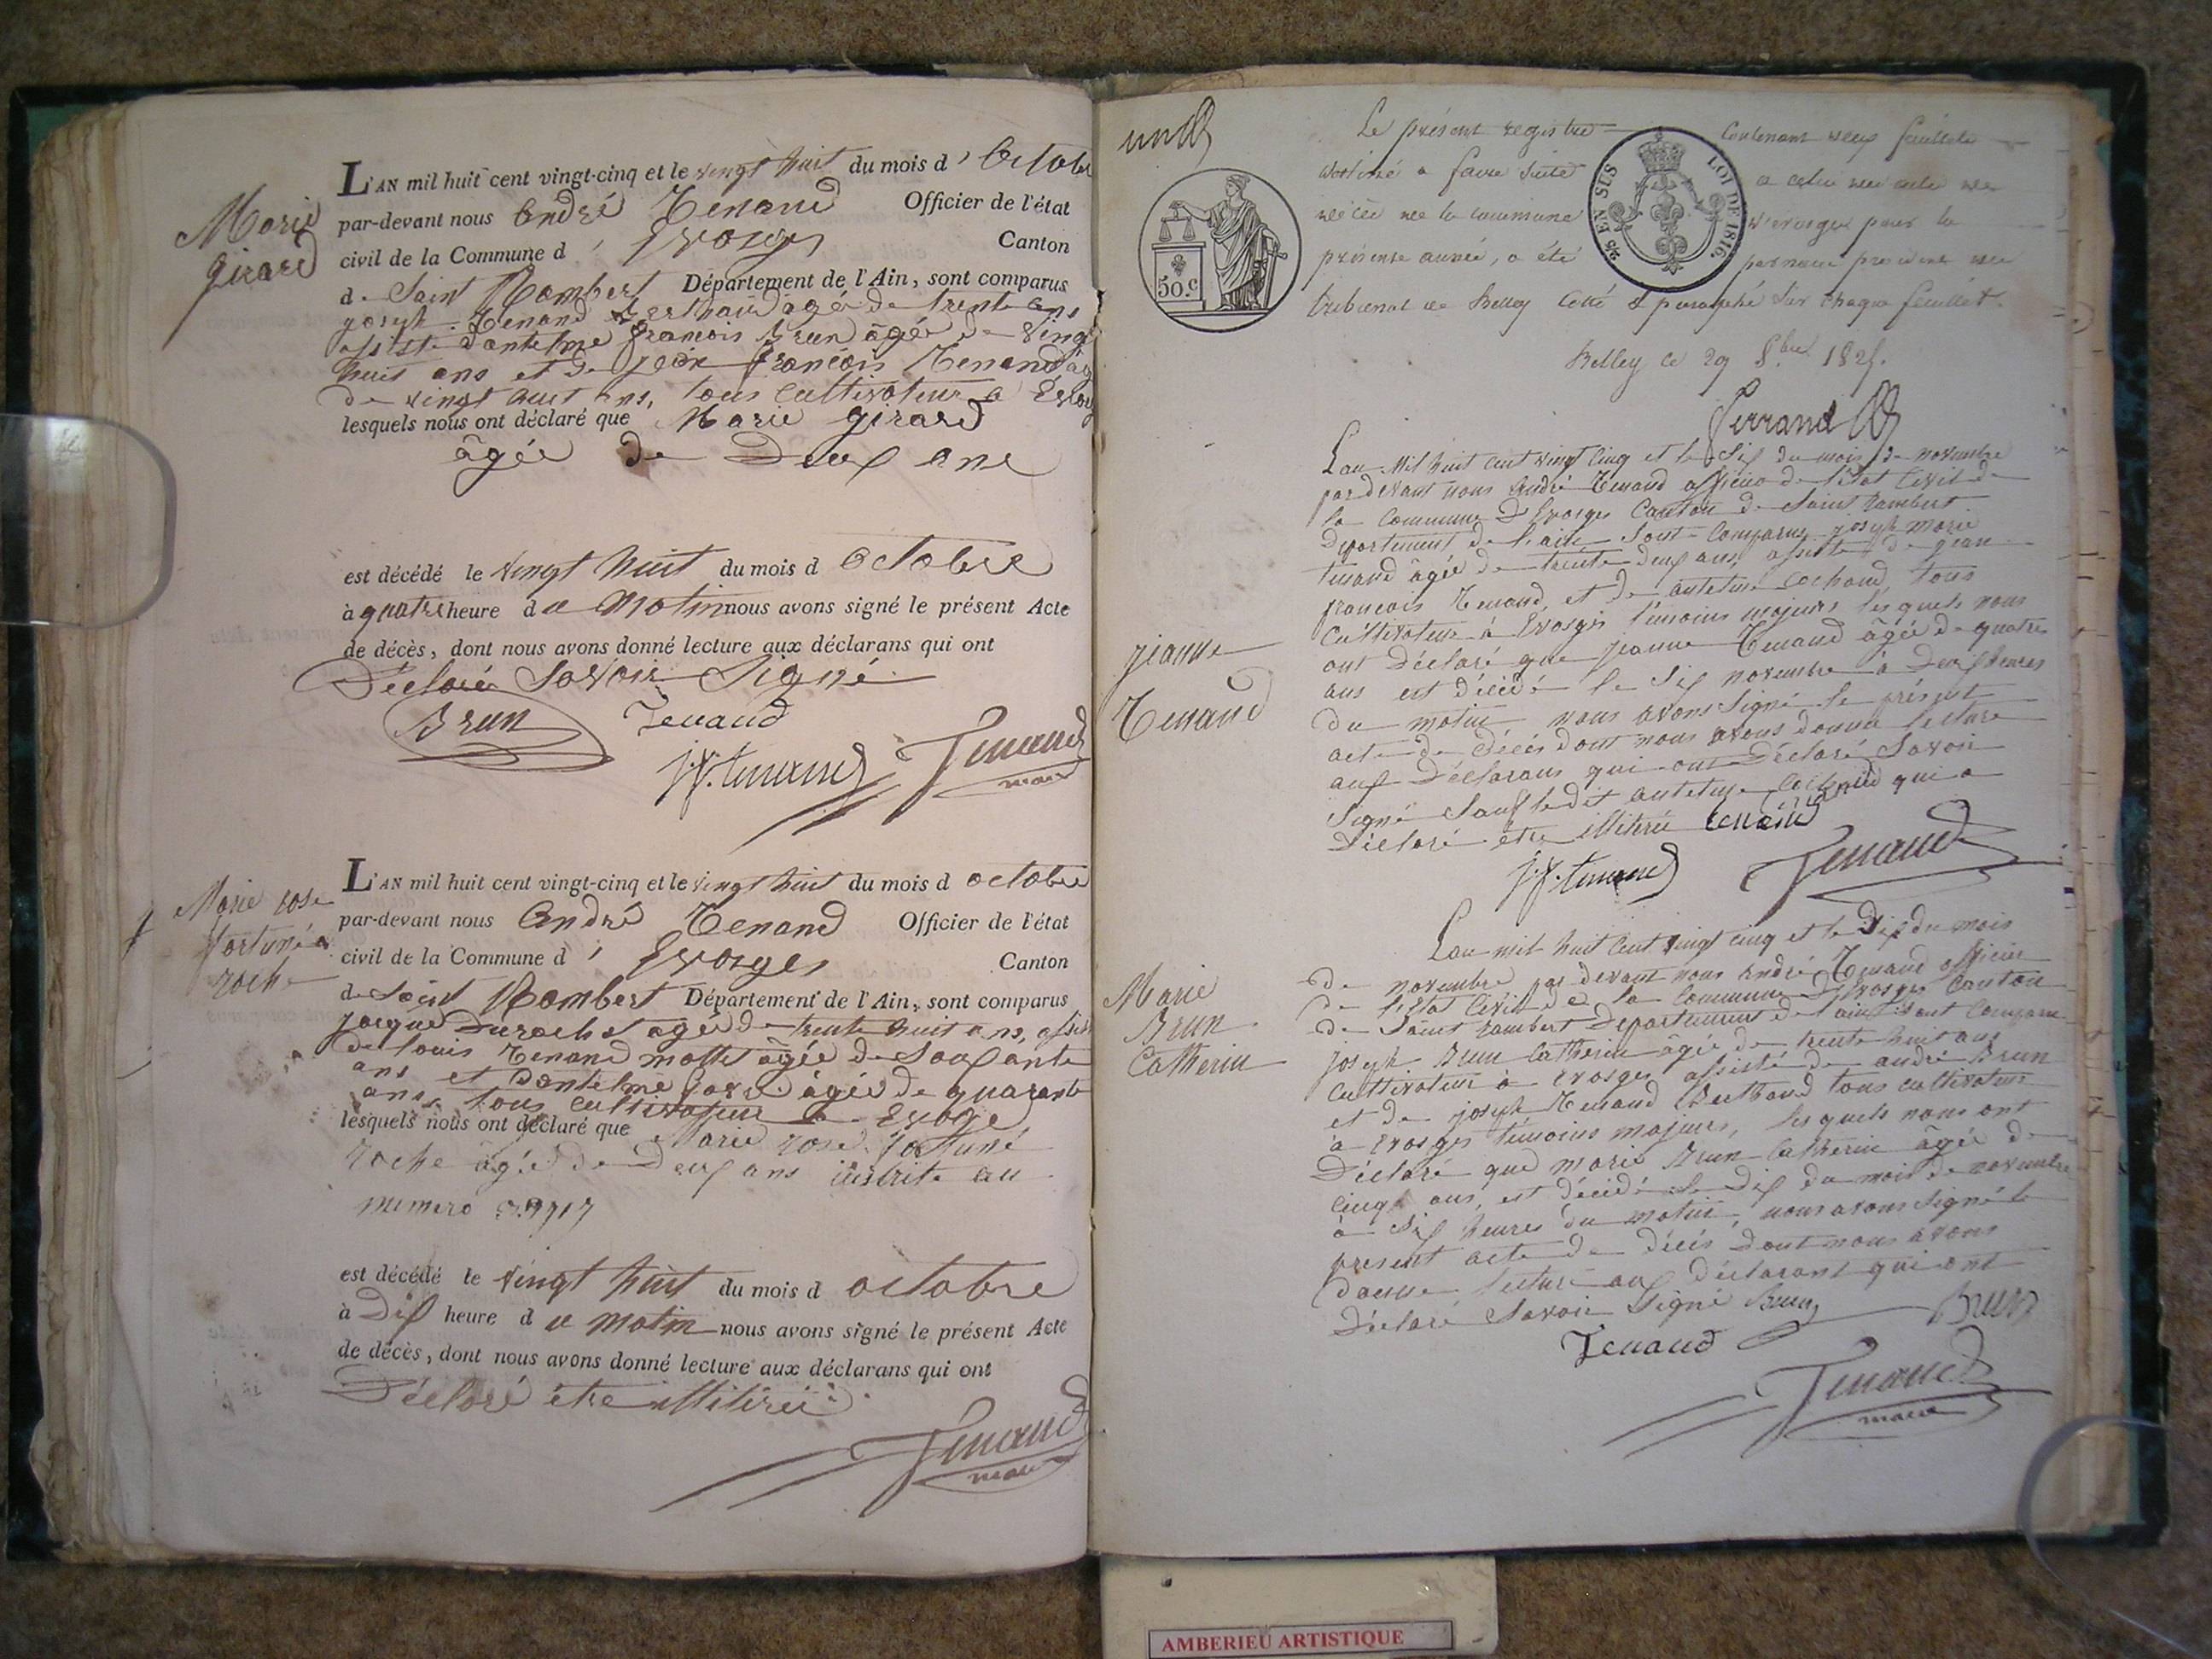 Marie
Girard
L'AN mil huit cent vingt-cinq et le vingt huit du mois d' Octobre
par-devant nous André Tenand Officier de l'état
civil de la Commune d' Evosges Canton
de Saint Rambert Département de l'Ain, sont comparus
joseph Tenand Berthaud âgé de trente ans
assisté d'antelme françois Brun âgé de vingt
huit ans et de jean françois Tenand
de vingt huit ans, tous cultivateur a
lesquels nous ont déclaré que Marie girard
âgée de Deux ans
est décédé le vingt huit du mois d Octobre
à quatre heure du Matin nous avons signé le présent Acte
de décès, dont nous avons donné lecture aux déclarans qui ont
Déclaré Savoir Signé
Brun Tenand
j.f. tenand Tenand
maire
Marie rose
fortunée
roche
L'AN mil huit cent vingt-cinq et le vingt huit du mois d octobre
par-devant nous André Tenand Officier de l'état
civil de la Commune d' Evosges Canton
de Saint Rambert Département de l'Ain, sont comparus
jacque Duroche agé de trente huit ans,
de louis Tenand motte âgée de Soixante
ans et d'antelme âgée de quarante
ans, tous cultivateur a Evoge
lesquels nous ont déclaré que Marie rose fortuné
roche âgée de Deux ans inscrite au
numero
est décédé le vingt huit du mois d octobre
à Dix heure du Matin nous avons signé le présent Acte
de décès, dont nous avons donné lecture aux déclarans qui ont
Déclaré être illitéré
Tenand
maire
Le présent registre contenant deux feuillets
destiné a faire Suite a celui des actes de
décès de la commune d'evosges pour la
présente année, a été par nous
tribunal de Belley Cotté & paraphé Sur chaque feuillet.
50.c
2/5 EN SUS LOI DE 1816.
Belley ce 29 8bre 1825.
Perrand
jeanne
Tenand
L'an Mil huit cent vingt Cinq et le Six du mois de novembre
par devant nous André Tenand officier de l'état Civil de
la Commune d'Evosges Canton de Saint Rambert
Departement de l'ain Sont Comparus joseph marie
tenand âgée de trente deux ans, assisté de jean
françois Tenand, et de antelme cochand, tous
Cultivateur à Evosges témoins majeurs lesquels nous
ont Déclaré que jeanne Tenand âgée de quatre
ans est décédé le Six novembre à Deux heures
du matin nous avons Signé le présent
acte de décés dont nous avons donné lecture
aux Déclarans qui ont Déclaré Savoir
Signé Sauf ledit antelme Cochand qui a
Déclaré être illitéré tenand
j.f. tenand Tenand
Marie
Brun
Catherin
L'an mil huit Cent vingt cinq et le Dix du mois
de novembre par devant nous André Tenand officier
de l'état Civil de la Commune d'Evosges Canton
de Saint Rambert Departement de l'ain Sont Comparu
joseph Brun Catherin âgée de trente huit ans
Cultivateur à Evosges assisté de andré Brun
et de joseph Tenand Berthaud tous cultivateur
à Evosges témoins majeurs, lesquels nous ont
Déclaré que marie Brun Catherin âgée de
Cinq ans, est décédé le Dix du mois de novembre
à Six heures du matin, nous avons Signé le
present acte de décés dont nous avons
donné lecture aux déclarant qui ont
Déclaré Savoir Signé Brun Brun
Tenand
Tenand
maire
AMBERIEU ARTISTIQUE